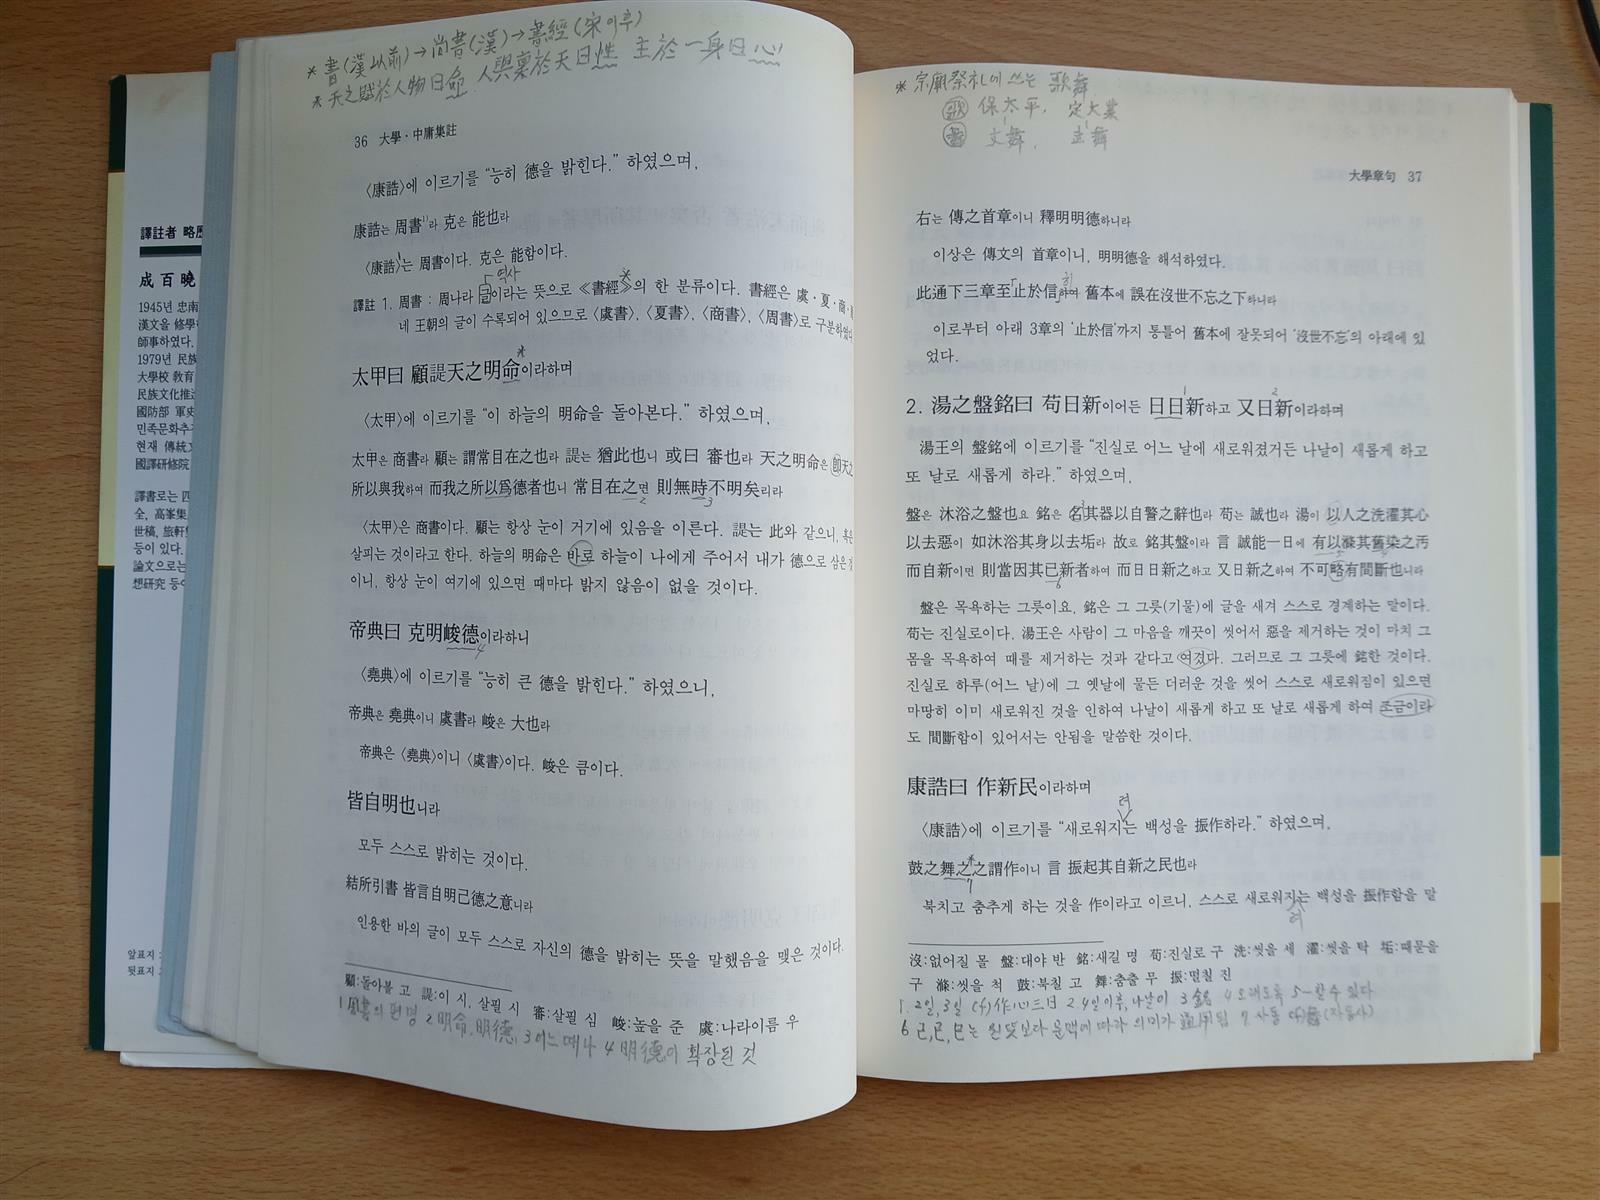 譯註者 略歷
成百曉
1945년 忠南
漢文을 修學
師事하였다.
1979년 民族
大學校 敎育
民族文化推進
國防部 軍史
민족문화추
현재 傳統文
國譯硏修院
譯書로는 四
全, 高峯集,
世稿, 旅軒
등이 있다.
論文으로는
想硏究 등
앞표지 :
뒷표지 :
* 書(漢以前)→尙書(漢)→書經(宋이후)
* 天之賦於人物曰命. 人與稟於天曰性 主於一身曰心
36 大學·中庸集註
〈康誥〉에 이르기를 “능히 德을 밝힌다.” 하였으며,
康誥는 周書1)라 克은 能也라
〈康誥〉는 周書이다. 克은 能함이다.
역사
譯註 1. 周書 : 周나라 글이라는 뜻으로 《書經》의 한 분류이다. 書經은 虞·夏·商·
네 王朝의 글이 수록되어 있으므로 〈虞書〉, 〈夏書〉, 〈商書〉, 〈周書〉로 구분하였다
太甲曰 顧諟天之明命이라하며
〈太甲〉에 이르기를 “이 하늘의 明命을 돌아본다.” 하였으며,
太甲은 商書라 顧는 謂常目在之也라 諟는 猶此也니 或曰 審也라 天之明命은 卽天之
所以與我하여 而我之所以爲德者也니 常目在之면 則無時不明矣리라
〈太甲〉은 商書이다. 顧는 항상 눈이 거기에 있음을 이른다. 諟는 此와 같으니, 혹은
살피는 것이라고 한다. 하늘의 明命은 바로 하늘이 나에게 주어서 내가 德으로 삼은 것
이니, 항상 눈이 여기에 있으면 때마다 밝지 않음이 없을 것이다.
帝典曰 克明峻德이라하니
〈堯典〉에 이르기를 “능히 큰 德을 밝힌다.” 하였으니,
帝典은 堯典이니 虞書라 峻은 大也라
帝典은 〈堯典〉이니 〈虞書〉이다. 峻은 큼이다.
皆自明也니라
모두 스스로 밝히는 것이다.
結所引書 皆言自明己德之意니라
인용한 바의 글이 모두 스스로 자신의 德을 밝히는 뜻을 말했음을 맺은 것이다.
顧:돌아볼 고 諟:이 시, 살필 시 審:살필 심 峻:높을 준 虞:나라이름 우
1 周書의 편명 2 明命, 明德, 3 어느 때나 4 明德이 확장된 것
* 宗廟祭礼에 쓰는 歌舞
歌 保太平, 定大業
舞 文舞,
大學章句 37
右는 傳之首章이니 釋明明德하니라
이상은 傳文의 首章이니, 明明德을 해석하였다.
此通下三章至止於信하여 舊本에 誤在沒世不忘之下하니라
이로부터 아래 3章의 ‘止於信’까지 통틀어 舊本에 잘못되어 ‘沒世不忘’의 아래에 있
었다.
2. 湯之盤銘曰 苟日新이어든 日日新하고 又日新이라하며
湯王의 盤銘에 이르기를 “진실로 어느 날에 새로워졌거든 나날이 새롭게 하고
또 날로 새롭게 하라.” 하였으며,
盤은 沐浴之盤也요 銘은 名其器以自警之辭也라 苟는 誠也라 湯이 以人之洗濯其心
以去惡이 如沐浴其身以去垢라 故로 銘其盤이라 言 誠能一日에 有以滌其舊染之汚
而自新이면 則當因其已新者하여 而日日新之하고 又日新之하여 不可略有間斷也니라
盤은 목욕하는 그릇이요, 銘은 그 그릇(기물)에 글을 새겨 스스로 경계하는 말이다.
苟는 진실로이다. 湯王은 사람이 그 마음을 깨끗이 씻어서 惡을 제거하는 것이 마치 그
몸을 목욕하여 때를 제거하는 것과 같다고 여겼다. 그러므로 그 그릇에 銘한 것이다.
진실로 하루(어느 날)에 그 옛날에 물든 더러운 것을 씻어 스스로 새로워짐이 있으면
마땅히 이미 새로워진 것을 인하여 나날이 새롭게 하고 또 날로 새롭게 하여 조금이라
도 間斷함이 있어서는 안됨을 말씀한 것이다.
康誥曰 作新民이라하며
려
〈康誥〉에 이르기를 “새로워지는 백성을 振作하라.” 하였으며,
鼓之舞之之謂作이니 言 振起其自新之民也라
북치고 춤추게 하는 것을 作이라고 이르니, 스스로 새로워지는 백성을 振作함을 말
려
沒:없어질 몰 盤:대야 반 銘:새길 명 苟:진실로 구 洗:씻을 세 濯:씻을 탁 垢:때묻을
구 滌:씻을 척 鼓:북칠 고 舞:춤출 무 振:떨칠 진
1. 2일, 3일 (cf)作心三日 2. 4일이후, 나날이 3 銘 4 오래도록 5 ~할 수 있다
6 己, 已, 巳는 원뜻보다 문맥에 따라 의미가 通用됨 7 사동